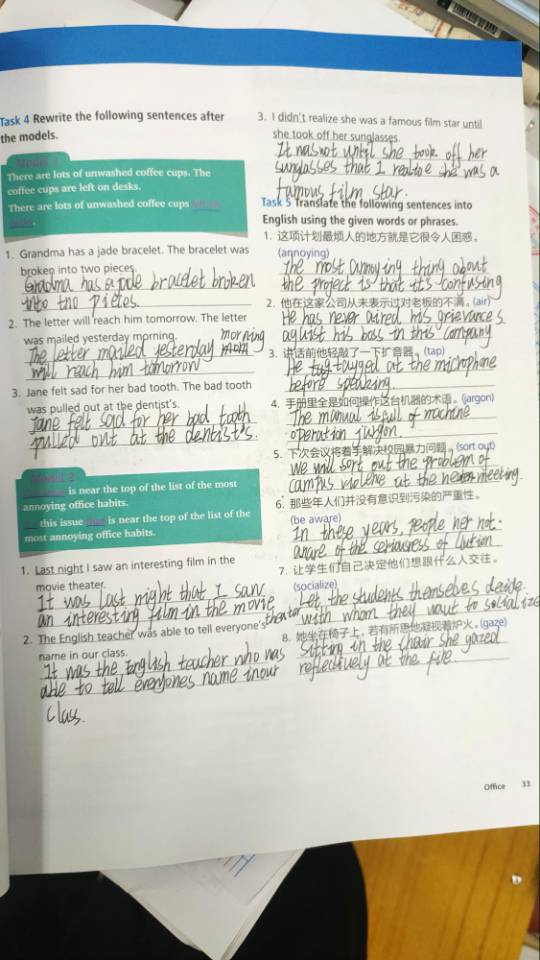 Task 4 Rewrite the following sentences after
the models.
Model 1
There are lots of unwashed coffee cups. The
coffee cups are left on desks.
There are lots of unwashed coffee cups left on
1. Grandma has a jade bracelet. The bracelet was
broken into two pieces.
Grandma has a jade bracelet broken
into two pieces.
2. The letter will reach him tomorrow. The letter
was mailed yesterday morning.
morning
The letter mailed yesterday
will reach him tomorrow
3. Jane felt sad for her bad tooth. The bad tooth
was pulled out at the dentist's.
Jane felt sad for her bad tooth
pulled out at the dentist's.
Model 2
is near the top of the list of the most
annoying office habits.
this issue that is near the top of the list of the
most annoying office habits.
1. Last night I saw an interesting film in the
movie theater.
It was last night that I saw
an interesting film in the movie
theater
2. The English teacher was able to tell everyone's
name in our class.
It was the English teacher who was
able to tell everyones name in our
class.
3. I didn't realize she was a famous film star until
she took off her sunglasses.
It was not until she took off her
sunglasses that I realize she was a
famous film star.
Task 5 Translate the following sentences into
English using the given words or phrases.
1. 这项计划最烦人的地方就是它很令人困惑。
(annoying)
The most annoying thing about
the project is that it's confusing
2. 他在这家公司从未表示过对老板的不满。(air)
He has never aired his grievances
against his boss in this company
3. 讲话前他轻敲了一下扩音器。(tap)
He tagged at the microphone
before speaking.
4. 手册里全是如何操作这台机器的术语。(jargon)
The manual is full of machine
operation jargon.
5. 下次会议将着手解决校园暴力问题。(sort out)
We will sort out the problem of
campus violene at the meeting.
6. 那些年人们并没有意识到污染的严重性。
(be aware)
In these years, people her not
aware of the seriousness of
7. 让学生们自己决定他们想跟什么人交往。
(socialize)
Let the students themselves decide
with whom they want to socialize
8. 她坐在椅子上，若有所思地凝视着炉火。(gaze)
Sitting in the chair she gazed
reflectively at the fire.
Office 33